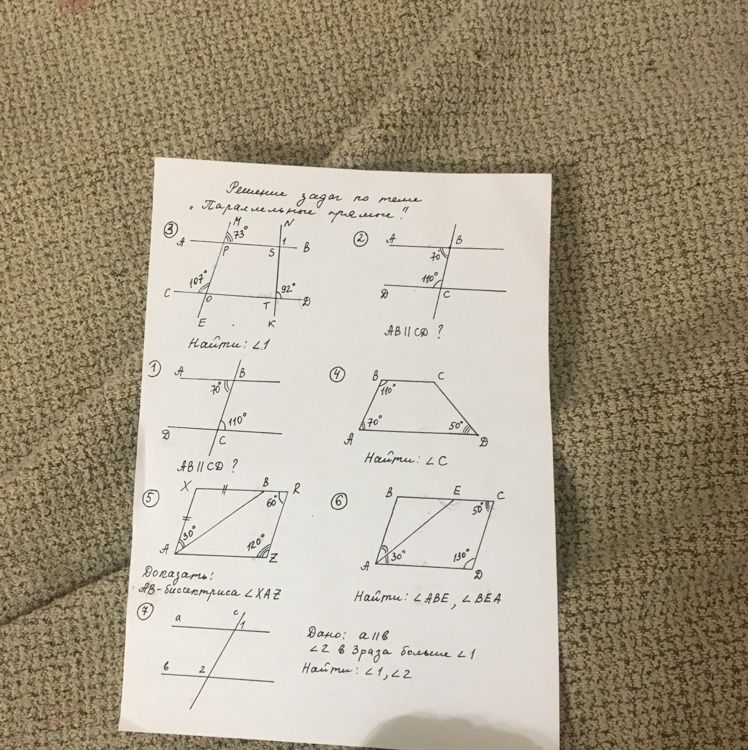 Решение задач по теме
"Параллельные прямые"
③
M
N
73°
A
P
S
1
B
107°
92°
C
O
T
D
E
K
Найти: ∠1
②
A
B
70°
110°
D
C
AB || CD ?
①
A
B
70°
110°
D
C
AB || CD ?
④
B
C
110°
70°
50°
A
D
Найти: ∠C
⑤
X
B
R
60°
30°
120°
A
Z
Доказать:
AB-биссектриса ∠XAZ
⑥
B
E
C
50°
30°
130°
A
D
Найти: ∠ABE, ∠BEA
⑦
a
c
1
в
2
Дано: a||в
∠2 в 3 раза больше ∠1
Найти: ∠1, ∠2